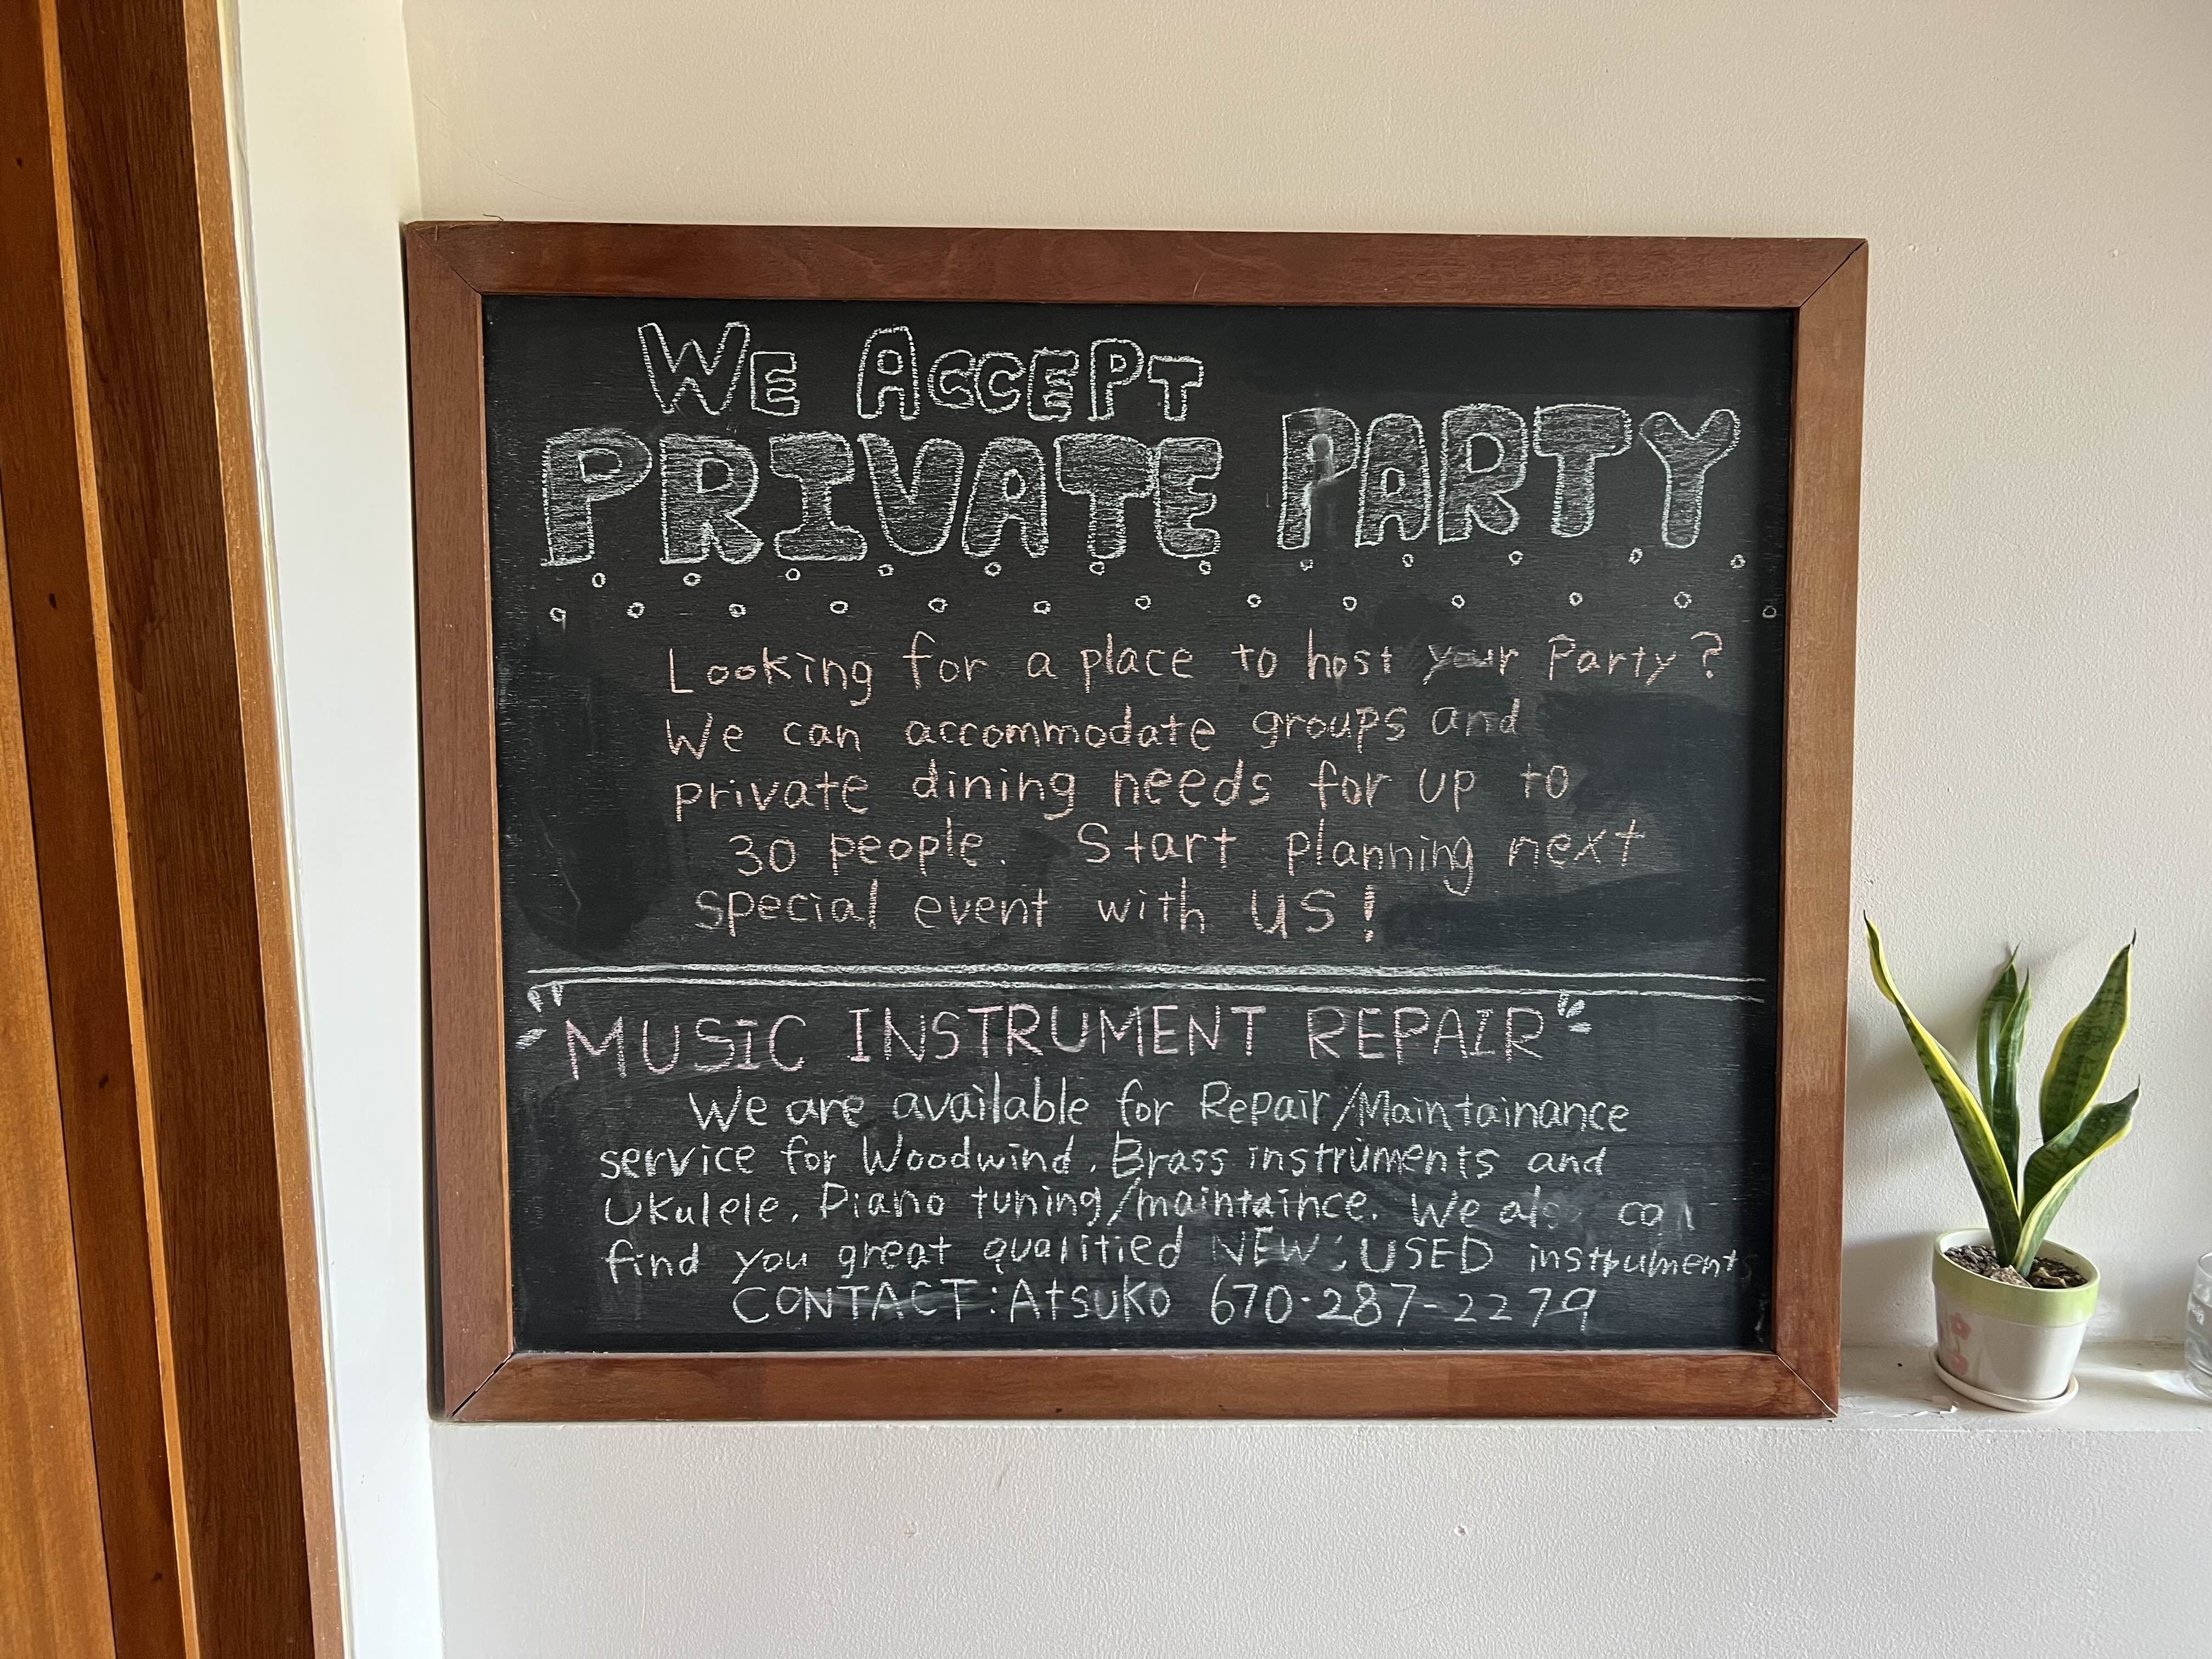 WE ACCEPT
PRIVATE PARTY
Looking for a place to host your Party?
We can accommodate groups and
private dining needs for up to
30 people. Start planning next
special event with us!
"MUSIC INSTRUMENT REPAIR"
We are available for Repair/Maintainance
service for Woodwind, Brass instruments and
Ukulele, Piano tuning/maintaince. We also can
find you great qualitied NEW; USED instruments
CONTACT: Atsuko 670-287-2279